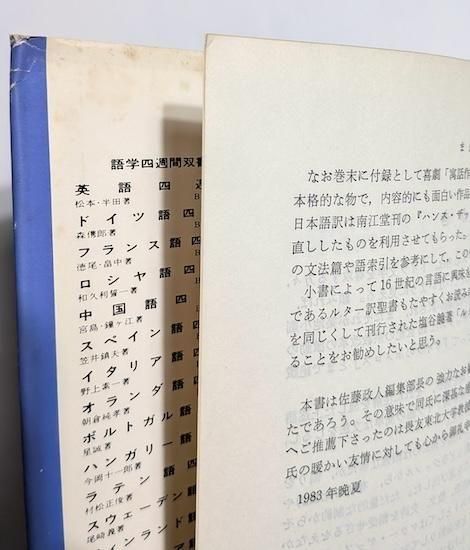 語学四週間双書
英語四週
松本・半田著
ドイツ語四
森儁郎著
フランス語四
徳尾・畠中著
ロシヤ語四
和久利誓一著
中国語四
宮島・鐘ヶ江著
スペイン語四
笠井鎮夫著
イタリア語
野上素一著
オランダ語
朝倉純孝著
ポルトガル語
星誠著
ハンガリー語
今岡十一郎著
ラテン語四
村松正俊著
スウェーデン
尾崎義著
ま
なお巻末に付録として喜劇「寓話作
本格的な物で，内容的にも面白い作品
日本語訳は南江堂刊の『ハンス・ザッ
直ししたものを利用させてもらった。
の文法篇や語索引を参考にして，この
小書によって16世紀の言語に興味を
であるルター訳聖書もたやすくお読み
を同じくして刊行された塩谷饒著「ル
ることをお勧めしたいと思う。
本書は佐藤政人編集部長の強力なお
たであろう。その意味で同氏に深甚な
へご推薦下さったのは畏友東北大学教
氏の暖かい友情に対しても心から御礼
1983年晩夏